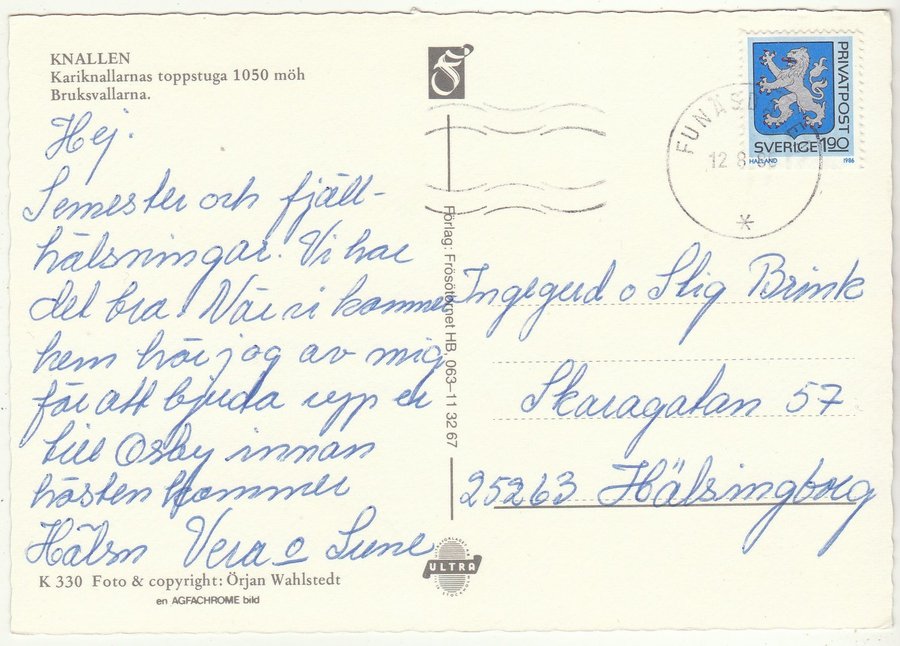 KNALLEN
Kariknallarnas toppstuga 1050 möh
Bruksvallarna.
Hej.
Semester och fjäll-
hälsningar. Vi har
det bra. När vi kommer
hem hör jag av mig
för att bjuda upp er
till Osby innan
hösten kommer
Hälsn Vera o Sune
K 330 Foto & copyright: Örjan Wahlstedt
en AGFACHROME bild
Förlag: Frösötornet HB, 063-11 32 67
ULTRA
PRIVATPOST
SVERIGE 1.90
HALLAND 1986
FUNÄSD
12 8
Ingegerd o Stig Brink
Skaragatan 57
25263 Hälsingborg